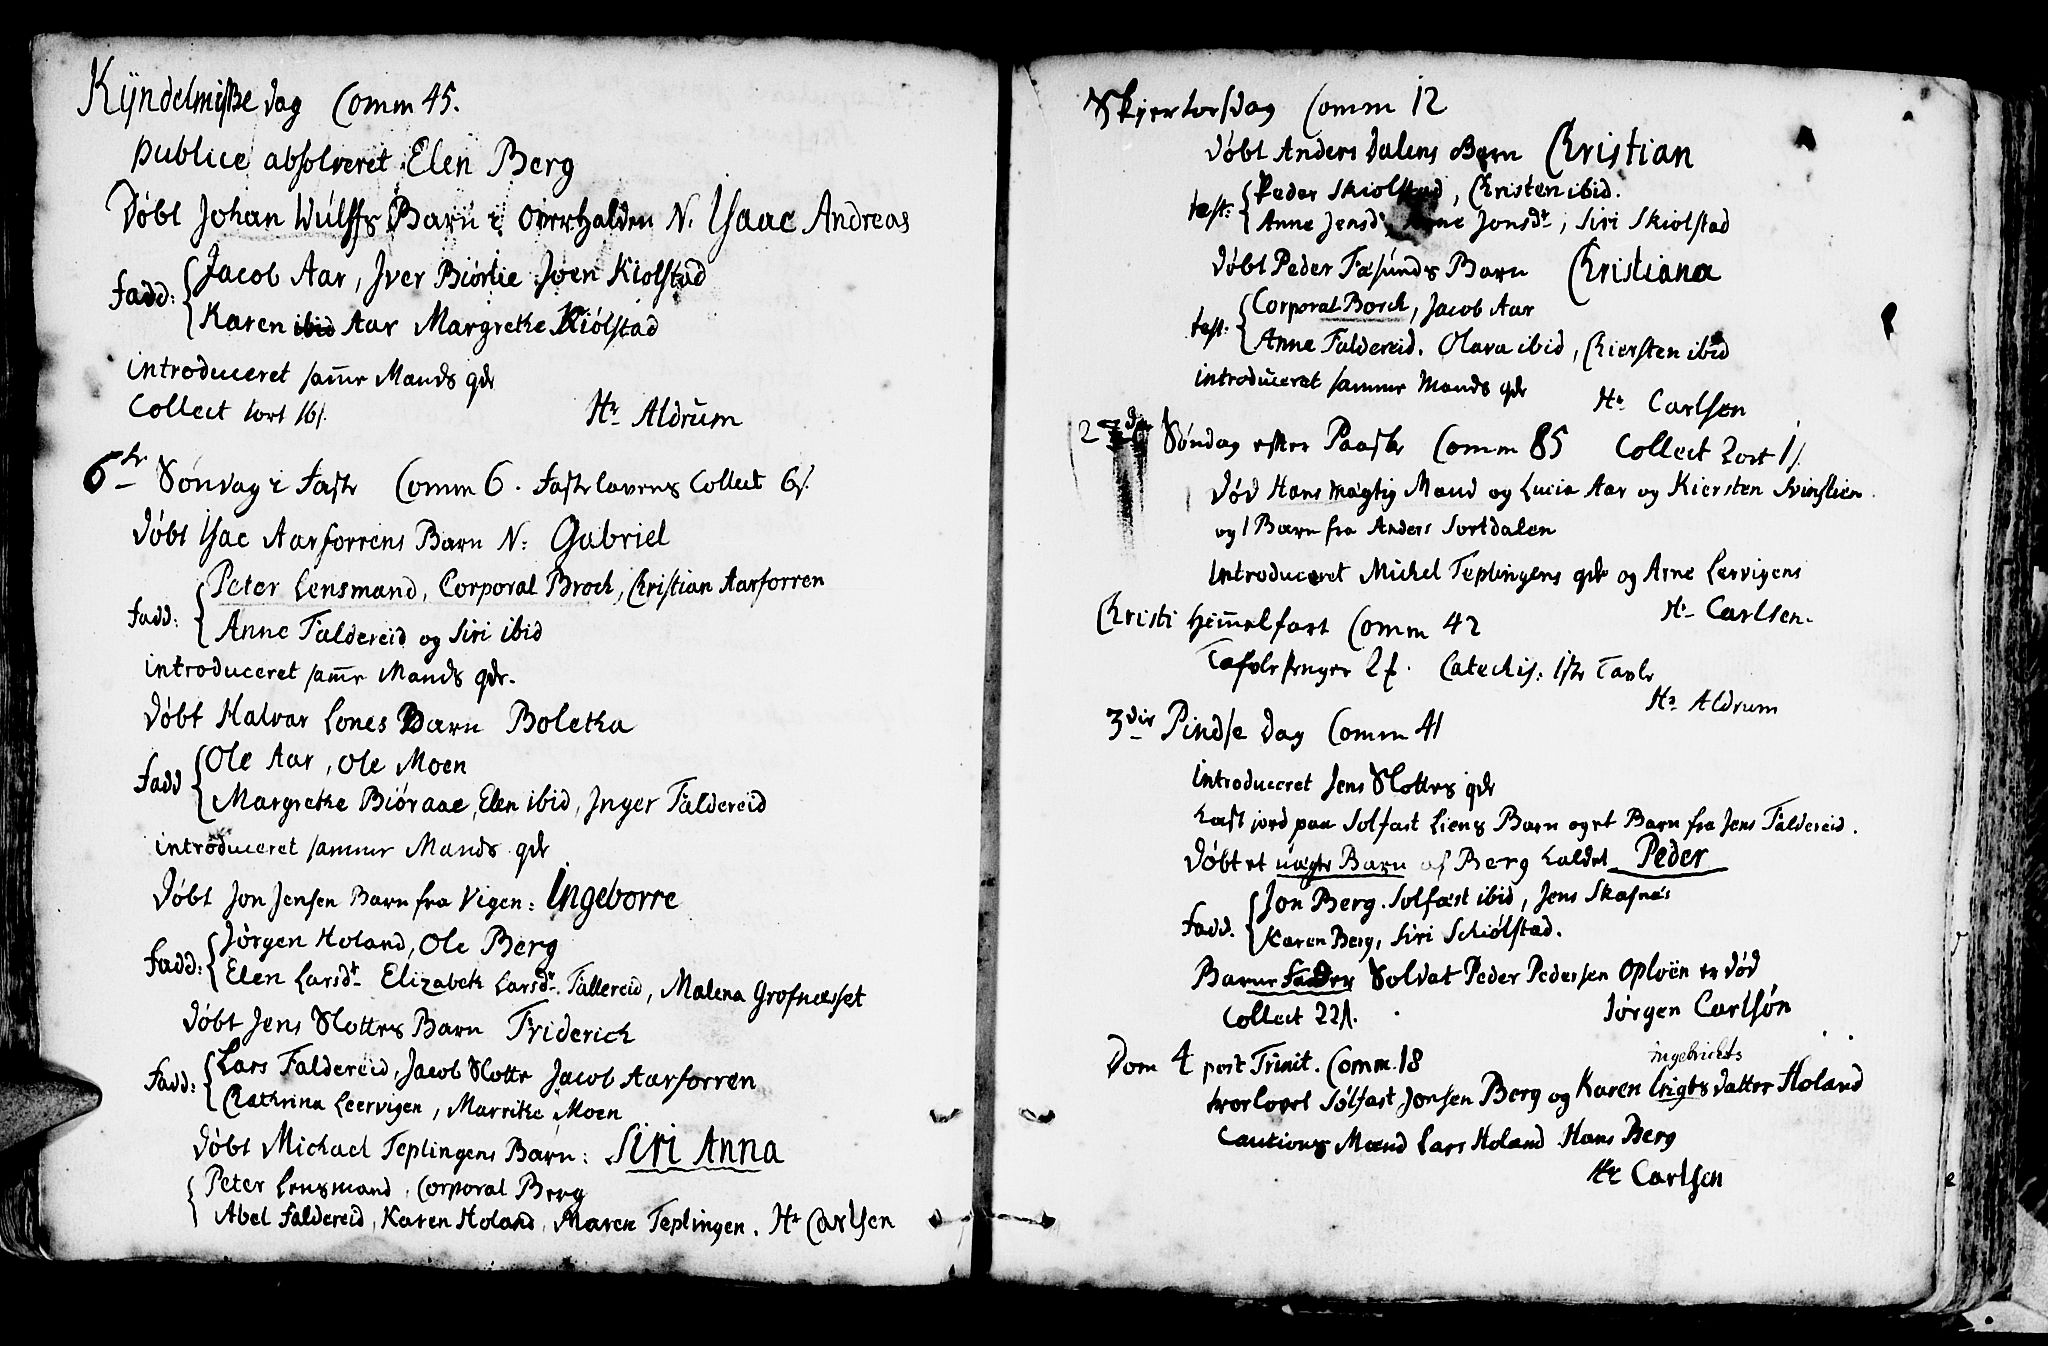 Kÿndelmisse dag Comm 45.
publice absolveret Elen Berg
Døbt Johan Wulffs Barn i Overhalden N. Isaac Andreas
fadd: Jacob Aar, Iver Biórlie Joen Kiolstad
Karen ibid Aar Margrethe Kiólstad
introduceret samme Mands qde
Collect 1ort 16s.
Hr Aldrum
6te Søndag i Faste Comm 6. Fastelavens Collect 6s.
Døbt Isac Aarforrens Barn N: Gabriel
fadd: Peter Lensmand, Corporal Broch, Christian Aarforren
Anne Faldereid og Siri ibid
introduceret samme Mands qde.
Døbt Halvar Lones Barn Boletha
fadd Ole Aar, Ole Moen
Margrethe Bióraae, Elen ibid, Inger Faldereid
introduceret samme Mands qde
Døbt Jon Jensen Barn fra Vigen: Ingeborre
fadd: Jórgen Holand, Ole Berg
Elen Larsdr Elizabeth Larsdr. Fallereid, Malena Grofnæsset
Døbt Jens Slottes Barn Friderich
fadd: Lars Faldereid, Jacob Slotte Jacob Aarforren
Chathrina Leervigen, Marrithe Moen
Døbt Michael Teplingens Barn: Siri Anna
Peter Lensmand, Corporal Berg
Abel Faldereid, Karen Holand, Maren Teplingen. Hr Carlsen
Skjertorsdag Comm 12
Døbt Anders Dalens Barn Christian
test: Peder Skiolstad, Christen ibid.
Anne Jensd, Jonsdr, Siri Skiolstad
Døbt Peder Fæsunds Barn Christiana
test: Corporal Borch, Jacob Aar
Anne Faldereid. Olava ibid, Chiersten ibid
introduceret samme Mands qde
Hr Carlsen
Søndag efter Paaske Comm 85 Collect 2ort 1s.
død Hans mægtig Mand og Lucia Aar og Kiersten Svinslien
og 1 Barn fra Anders Sortdalen
Introduceret Michel Teplingens qde og Arne Lervigens
Hr Carlsen.
Christi Himmelfart Comm 42
Catechis: 1ste Tavle
Hr Aldrum
3die Pindse dag Comm 41
introduceret Jens Slottes qde
kast jord paa Solfast Liens Barn og et Barn fra Jens Faldereid.
Døbt et uægte Barn af Berg kaldet Peder
fadd. Jon Berg. Solfast ibid, Jens Skafnæs
Karen Berg, Siri Schiólstad.
Barne Fadern Soldat Peder Pedersen Oploën er død
Collect 22s.
Jórgen Carlsón
Dom 4 post Trinit. Comm. 18
ingebrichts
trorlovet Sólfast Jonsen Berg og Karen datter Holand
Cautions Mænd Lars Holand Hans Berg
Hr Carlsen